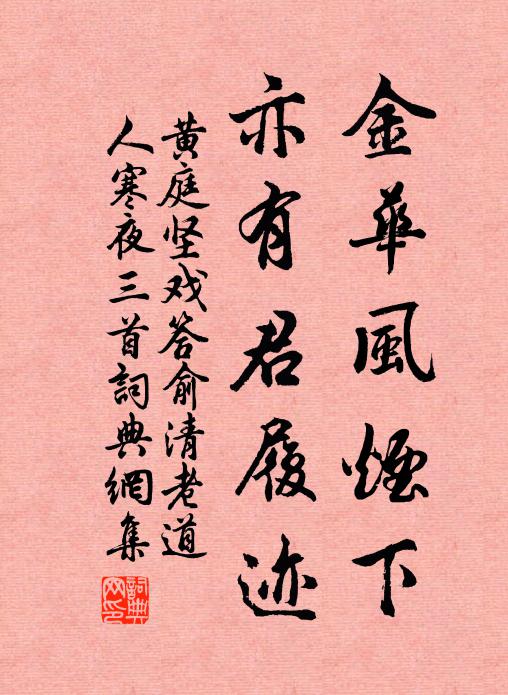 金華風煙下
亦有君履迹
黄庭坚戏答俞清老道
人寒夜三首詞典網集
詞典网印